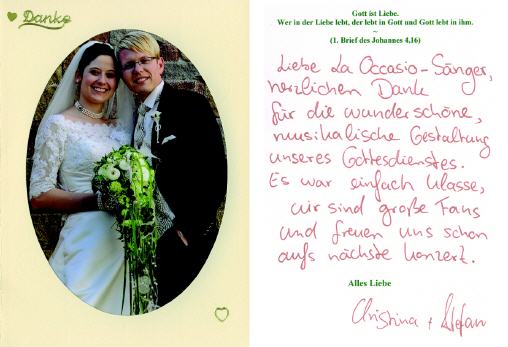 Danke
Gott ist Liebe.
Wer in der Liebe lebt, der lebt in Gott und Gott lebt in ihm.
~
(1. Brief des Johannes 4,16)
Liebe La Occasio-Sänger,
herzlichen Dank
für die wunderschöne,
musikalische Gestaltung
unseres Gottesdienstes.
Es war einfach klasse,
wir sind große Fans
und freuen uns schon
aufs nächste Konzert.
Alles Liebe
Christina + Stefan